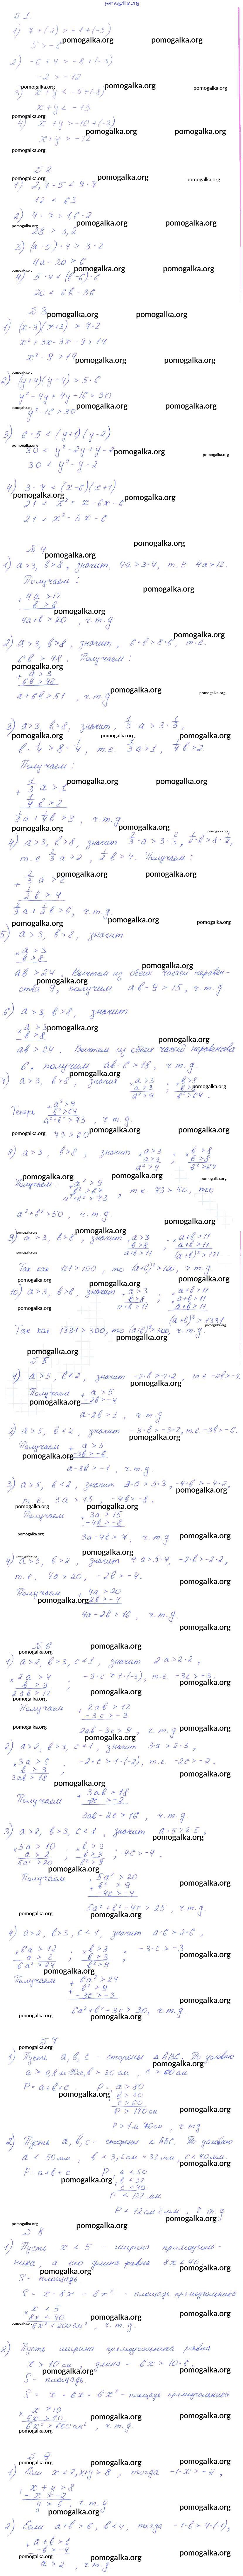 pomogalka.org
№ 1
1) 7 + (-2) > -1 + (-5)
5 > -6
2) -6 + 4 > -8 + (-3)
3) x + y < -5 + (-8)
x + y < -13
4) x + y > -10 + (-2)
x + y > -12
№ 2
1) 2,4 · 5 < 9 · 7
12 < 63
2) 4 · 7 > 1,6 · 2
28 > 3,2
3) (a - 5) · 4 > 3 · 2
4a - 20 > 6
4) 5 · 4 < (b - 6) · 6
20 < 6b - 36
№ 3
1) (x - 3)(x + 3) > 7 · 2
x² + 3x - 3x - 9 > 14
x² - 9 > 14
2) (y + 4)(y - 4) > 5 · 6
y² - 4y + 4y - 16 > 30
y² - 16 > 30
3) 6 · 5 < (y + 1)(y - 2)
30 < y² - 2y + y - 2
30 < y² - y - 2
4) 3 · 7 < (x - 6)(x + 1)
21 < x² + x - 6x - 6
21 < x² - 5x - 6
№ 4
1) a > 3, b > 8, значит, 4a > 3·4, т.е. 4a > 12.
Получаем:
+ 4a > 12
b > 8
4a + b > 20, ч.т.д
2) a > 3, b > 8, значит, 6·b > 8·6, т.е.
6b > 48. Получаем:
+ a > 3
6b > 48
a + 6b > 51, ч.т.д
3) a > 3, b > 8, значит, 1/3 a > 3 · 1/3,
b · 1/4 > 8 · 1/4, т.е. 1/3 a > 1, 1/4 b > 2.
Получаем:
+ 1/3 a > 1
1/4 b > 2
1/3 a + 1/4 b > 3, ч.т.д
4) a > 3, b > 8, значит 2/3 · a > 3 · 2/3, 1/2 · b > 8 · 1/2,
т.е 2/3 a > 2, 1/2 b > 4. Получаем:
+ 2/3 a > 2
1/2 b > 4
2/3 a + 1/2 b > 6, ч.т.д
5) a > 3, b > 8, значит
× a > 3
b > 8
ab > 24. Вычтем из обеих частей неравен-
ства 9, получим ab - 9 > 15, ч.т.д.
6) a > 3, b > 8, значит
× a > 3
b > 8
ab > 24. Вычтем из обеих частей неравенства
6, получим ab - 6 > 18, ч.т.д
7) a > 3, b > 8, значит × a > 3 ; × b > 8
a > 3 b > 8
a² > 9 b² > 64.
Теперь + a² > 9
b² > 64
a² + b² > 73, ч.т.д
8) a > 3, b > 8, значит × a > 3 ; × b > 8
a > 3 b > 8
a² > 9 b² > 64
Получаем: + a² > 9
b² > 64
a² + b² > 73, т.к 73 > 50, то
a² + b² > 50, ч.т.д
9) a > 3, b > 8, значит + a > 3 × a + b > 11
b > 8 a + b > 11
a + b > 11 (a + b)² > 121
Так как 121 > 100, то (a + b)² > 100, ч.т.д.
10) a > 3, b > 8, значит + a > 3 × a + b > 11
b > 8 a + b > 11
a + b > 11 a + b > 11
(a + b)³ > 1331
Так как 1331 > 300, то (a + b)³ > 300, ч.т.д.
№ 5
1) a > 5, b < 2, значит -2·b > -2·2, т.е -2b > -4.
Получаем + a > 5
-2b > -4
a - 2b > 1, ч.т.д
2) a > 5, b < 2, значит -3·b > -3·2, т.е -3b > -6.
Получаем + a > 5
-3b > -6
a - 3b > -1, ч.т.д
3) a > 5, b < 2, значит 3·a > 5·3, -4·b > -4·2,
т.е. 3a > 15, -4b > -8.
Получаем + 3a > 15
-4b > -8
3a - 4b > 7, ч.т.д.
4) a > 5, b > 2, значит 4·a > 5·4, -2·b > -2·2,
т.е. 4a > 20, -2b > -4.
Получаем + 4a > 20
-2b > -4
4a - 2b > 16, ч.т.д.
№ 6
1) a > 2, b > 3, c < 1, значит 2·a > 2·2,
× 2a > 4 -3·c > 1·(-3), т.е -3c > -3.
b > 3
2ab > 12
Получаем + 2ab > 12
-3c > -3
2ab - 3c > 9, ч.т.д
2) a > 2, b > 3, c < 1, значит 3a > 2·3,
× 3a > 6 -2·c > 1·(-2), т.е. -2c > -2.
b > 3
3ab > 18
Получаем + 3ab > 18
-2c > -2
3ab - 2c > 16, ч.т.д.
3) a > 2, b > 3, c < 1, значит a·5 > 2·5,
× 5a > 10 ; × b > 3 ; -4c > -4.
a > 2 b > 3
5a² > 20 b² > 9
Получаем + 5a² > 20
b² > 9
-4c > -4
5a² + b² - 4c > 25, ч.т.д.
4) a > 2, b > 3, c < 1, значит a·6 > 2·6,
× 6a > 12 ; × b > 3 ; -3·c > -3
a > 2 b > 3
6a² > 24 b² > 9
Получаем + 6a² > 24
b² > 9
-3c > -3
6a² + b² - 3c > 30, ч.т.д.
№ 7
1) Пусть a, b, c - стороны △ABC. По условию
P = a + b + c
P > 170 см
P > 1м 70см, ч.т.д
2) Пусть a, b, c - стороны △ABC. По условию
a < 50 мм, b < 3,2 см = 32 мм, c < 40 мм
P = a + b + c P: + a < 50
b < 32
c < 40
P < 122 мм
P < 12 см 2 мм, ч.т.д
№ 8
1) Пусть x < 5 - ширина прямоуголь-
ника, а его длина равна 8x < 40.
S - площадь
S = x · 8x = 8x² - площадь прямоугольника
× x < 5
8x < 40
8x² < 200 см², ч.т.д.
2) Пусть ширина прямоугольника равна
x > 10 см, длина - 6x > 10·6.
S - площадь
S = x · 6x = 6x² - площадь прямоугольника
× x > 10
6x > 60
6x² > 600 см², ч.т.д.
№ 9
1) Если x < 2, x + y > 8, тогда -1·x > -2,
+ x + y > 8
-x > -2
y > 6, ч.т.д.
2) Если a + b > 6, b < 4, тогда -1·b > 4·(-1),
+ a + b > 6
-b > -4
a > 2, ч.т.д.